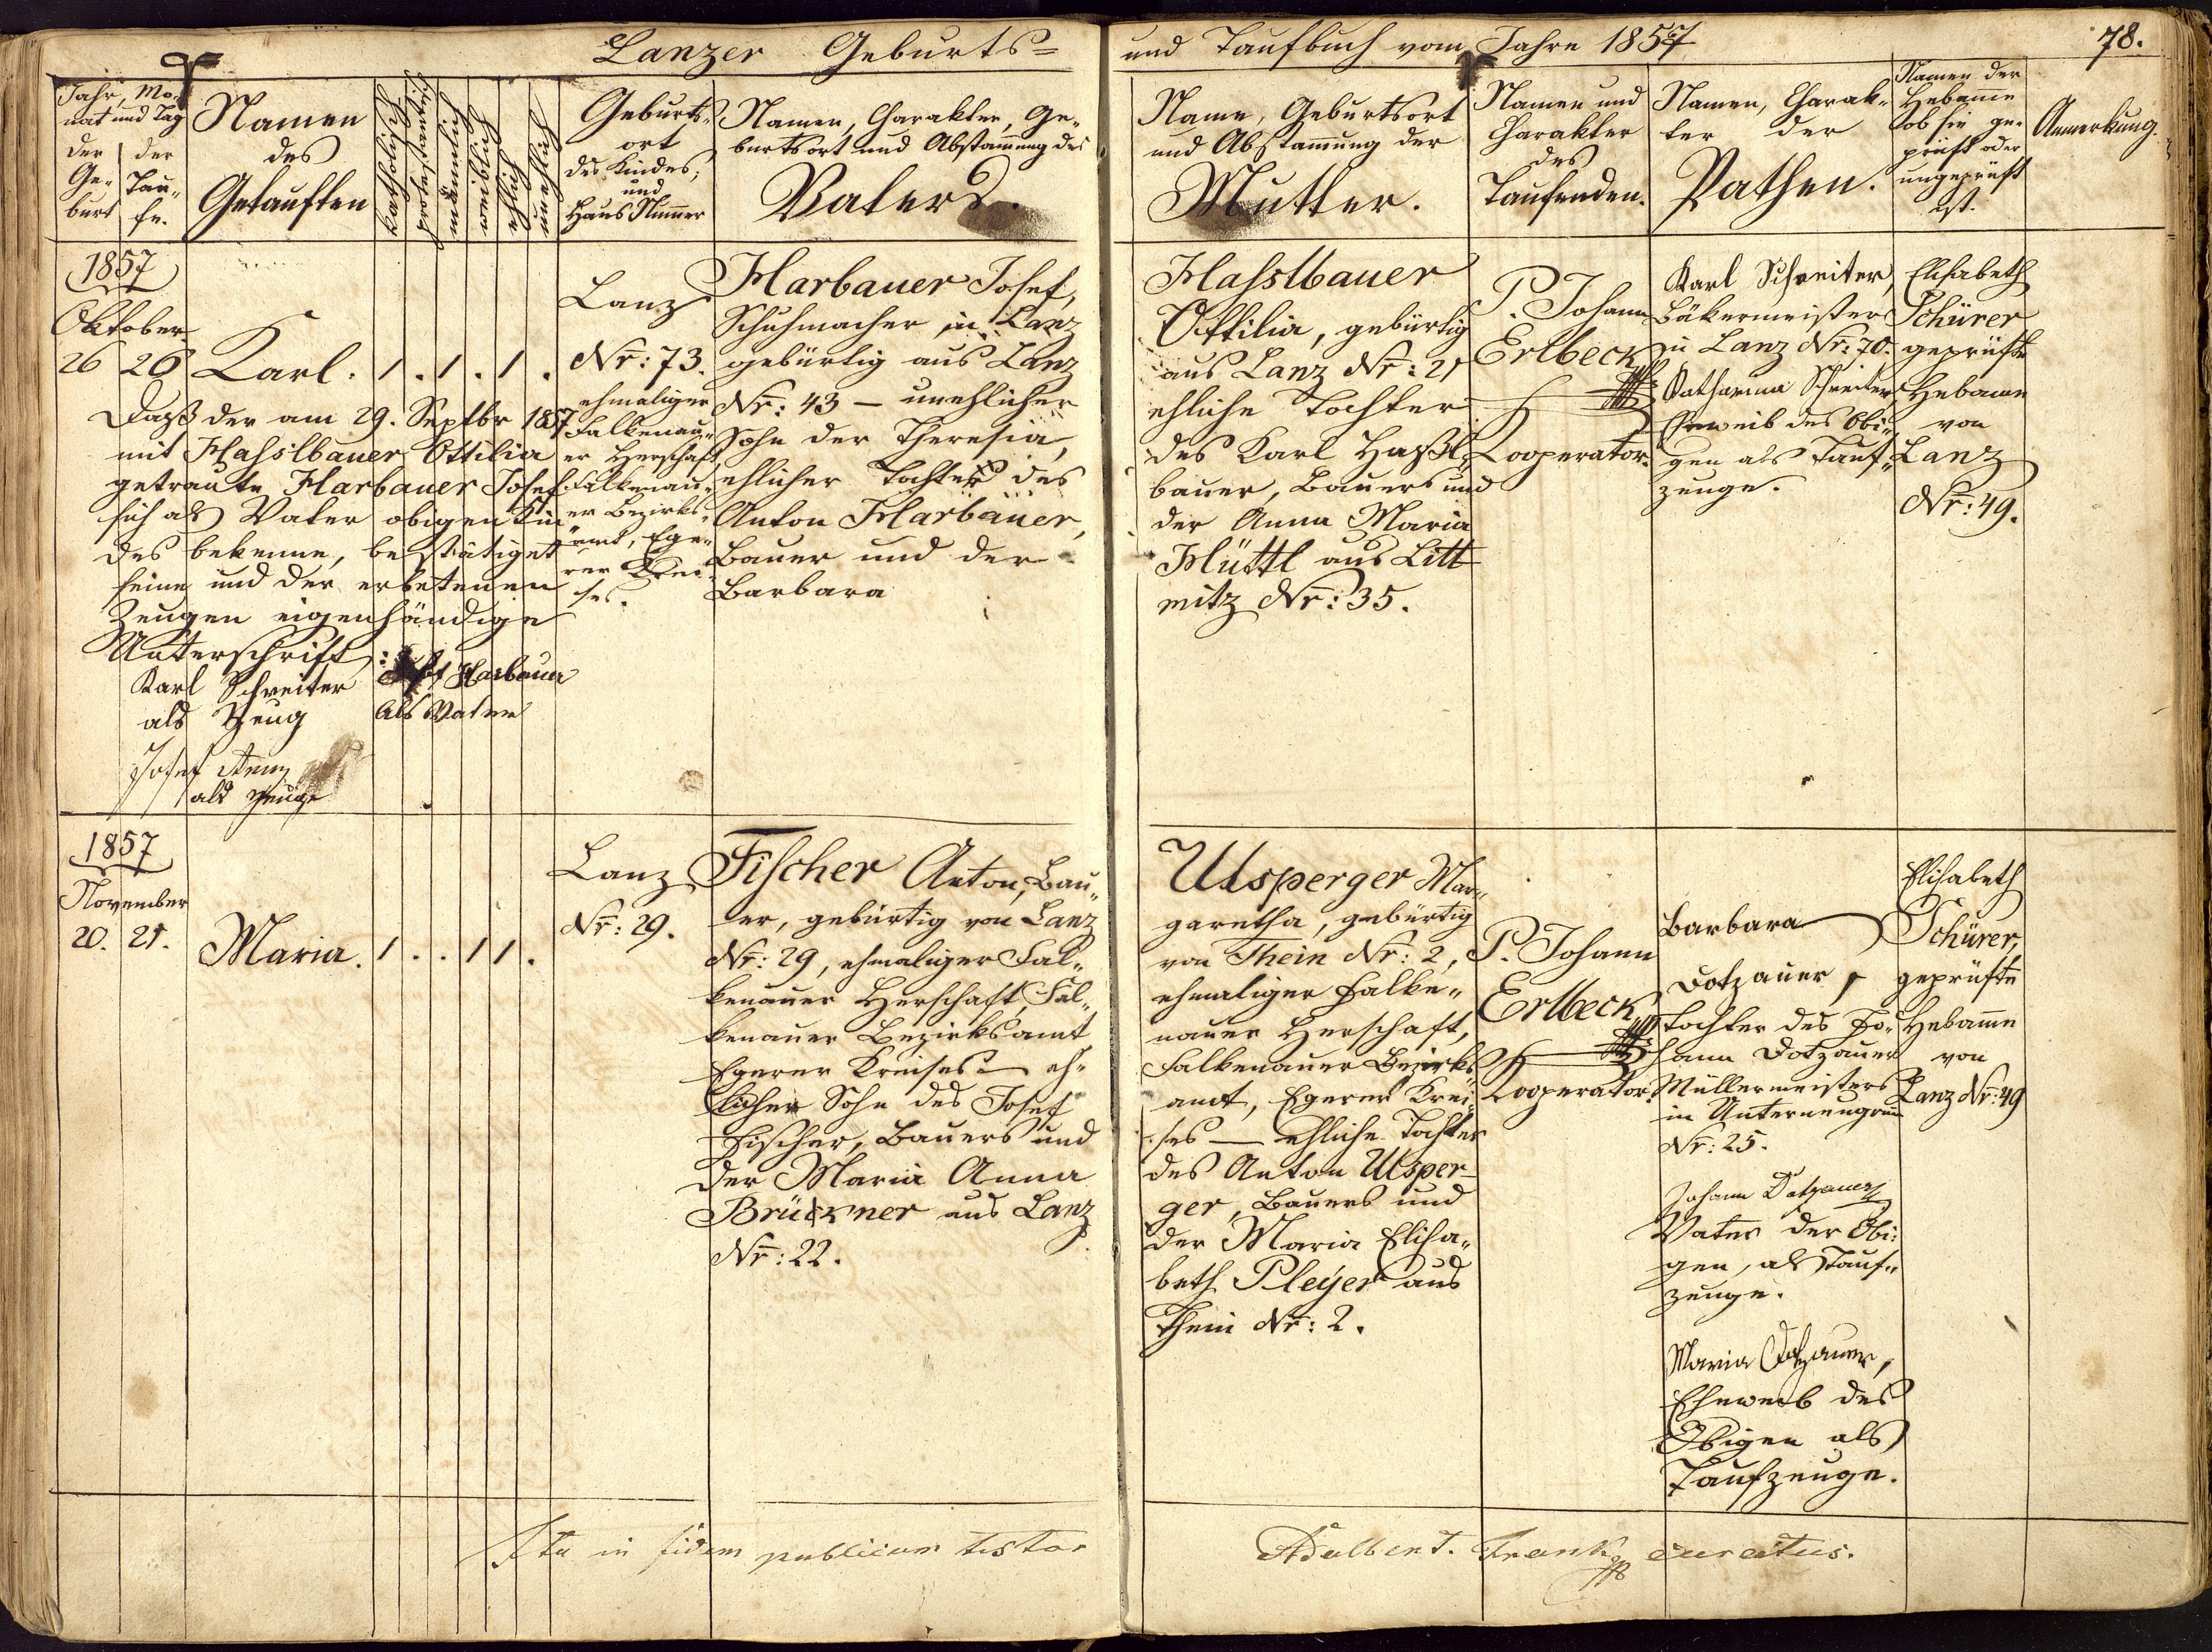 Lanzer Geburts=
und Taufbuch vom Jahre 1857
78.
Jahr, Mo-
nat und Tag
der
Ge-
burt
der
Tau-
fe.
Namen
des
Getauften
katholisch
protestantisch
männlich
weiblich
ehlich
unehlich
Geburts-
ort
des Kindes,
und
Haus Num̄er
Namen, Charakter, Ge-
burtsort und Abstam̄ung des
Vaters.
Name, Geburtsort
und Abstam̄ung der
Mutter.
Namen und
Charakter
des
Taufenden.
Namen, Charak-
ter der
Pathen.
Namen der
Hebam̄e
ob sie ge-
prüft oder
ungeprüft
ist.
Anmerkung.
1857
Oktober
26 26
Karl. 1 . 1 . 1 .
Lanz
Nr: 73.
ehmaliger
Falkenau-
er Herschaft,
Falkenau-
er Bezirks-
amt, Ege-
rer Krei-
ses.
Harbauer Josef,
Schuhmacher in Lanz
gebürtig aus Lanz
Nr: 43 – unehlicher
Sohn der Theresia,
ehlicher Tochter des
Anton Harbauer,
Bauer und der
Barbara
Hasslbauer
Ottilia, gebürtig
aus Lanz Nr: 21
ehliche Tochter
des Karl Haßl-
bauer, Bauers und
der Anna Maria
Hüttl aus Litt
mitz Nr: 35.
P. Johann
Erlbeck
Cooperator.
Karl Schreiter,
Bäkermeister
in Lanz Nr: 70.
Katharina Schreiter
Eheweib des Obi-
gen als Tauf-
zeuge.
Elisabeth
Schürer
geprüfte
Hebame
von
Lanz
Nr: 49.
Daß der am 29. Septbr 1857
mit Hasslbauer Ottilia
getraute Harbauer Josef
sich als Vater obigen Kin-
des bekenne, bestätiget
seine und der erbetenen
Zeugen eigenhändige
Unterschrift:
Karl Schreiter
als Zeug
Josef Harbauer
als Vater
Josef
als Zeuge
1857
November
20. 21.
Maria. 1 . . 1 1 .
Lanz
Nr: 29.
Fischer Anton, Bau-
er, gebürtig von Lanz
Nr: 29, ehmaliger Fal-
kenauer Herschaft, Fal-
kenauer Bezirksamt
Egerer Kreises – eh-
licher Sohn des Josef
Fischer, Bauers und
der Maria Anna
Brückner aus Lanz
Nr: 22.
Ulsperger Mar-
garetha, gebürtig
von Thein Nr: 2,
ehmaliger Falke-
nauer Herschaft,
Falkenauer Bezirks
amt, Egerer Krei-
ses – ehliche Tochter
des Anton Ulsper-
ger, Bauers und
der Maria Elisa-
beth Pleÿer aus
Thein Nr: 2.
P. Johann
Erlbeck
Cooperator.
Barbara
Dotzauer,
Tochter des Jo-
hann Dotzauer
Müllermeisters
in Unterneugrün
Nr: 25.
Johann Dotzauer
Vater der Obi-
gen, als Tauf-
zeuge.
Maria Dotzauer,
Eheweib des
Obigen als
Taufzeuge.
Elisabeth
Schürer,
geprüfte
Hebam̄e
von
Lanz Nr: 49
Ita in fidem publicam testor
Adalbert. Frank curatus.